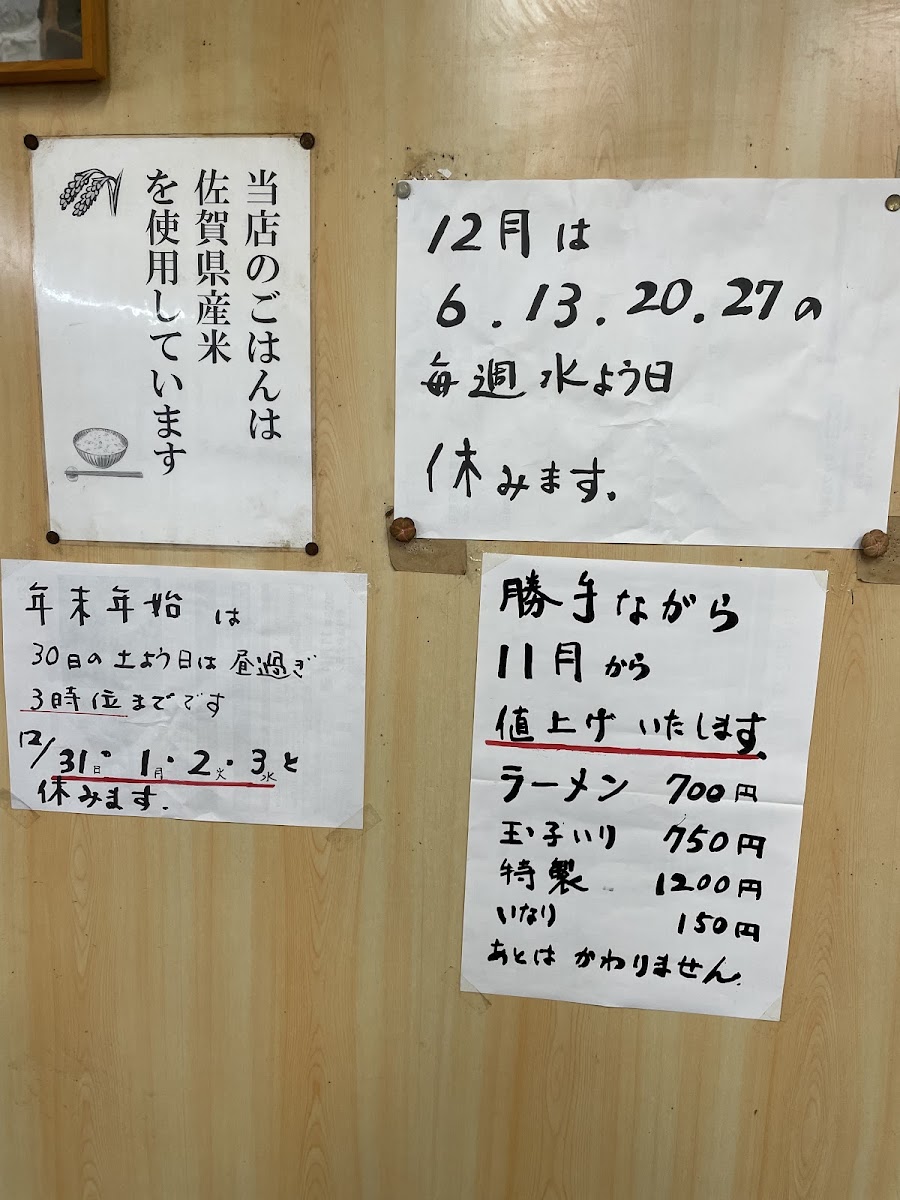 当店のごはんは
佐賀県産米
を使用しています
12月は
6.13.20.27の
毎週水よう日
休みます.
年末年始は
30日の土よう日は昼過ぎ
3時位までです
12/31日・1月・2火・3水と
休みます.
勝手ながら
11月から
値上げいたします.
ラーメン 700円
玉子いり 750円
特製 1200円
いなり 150円
あとはかわりません.